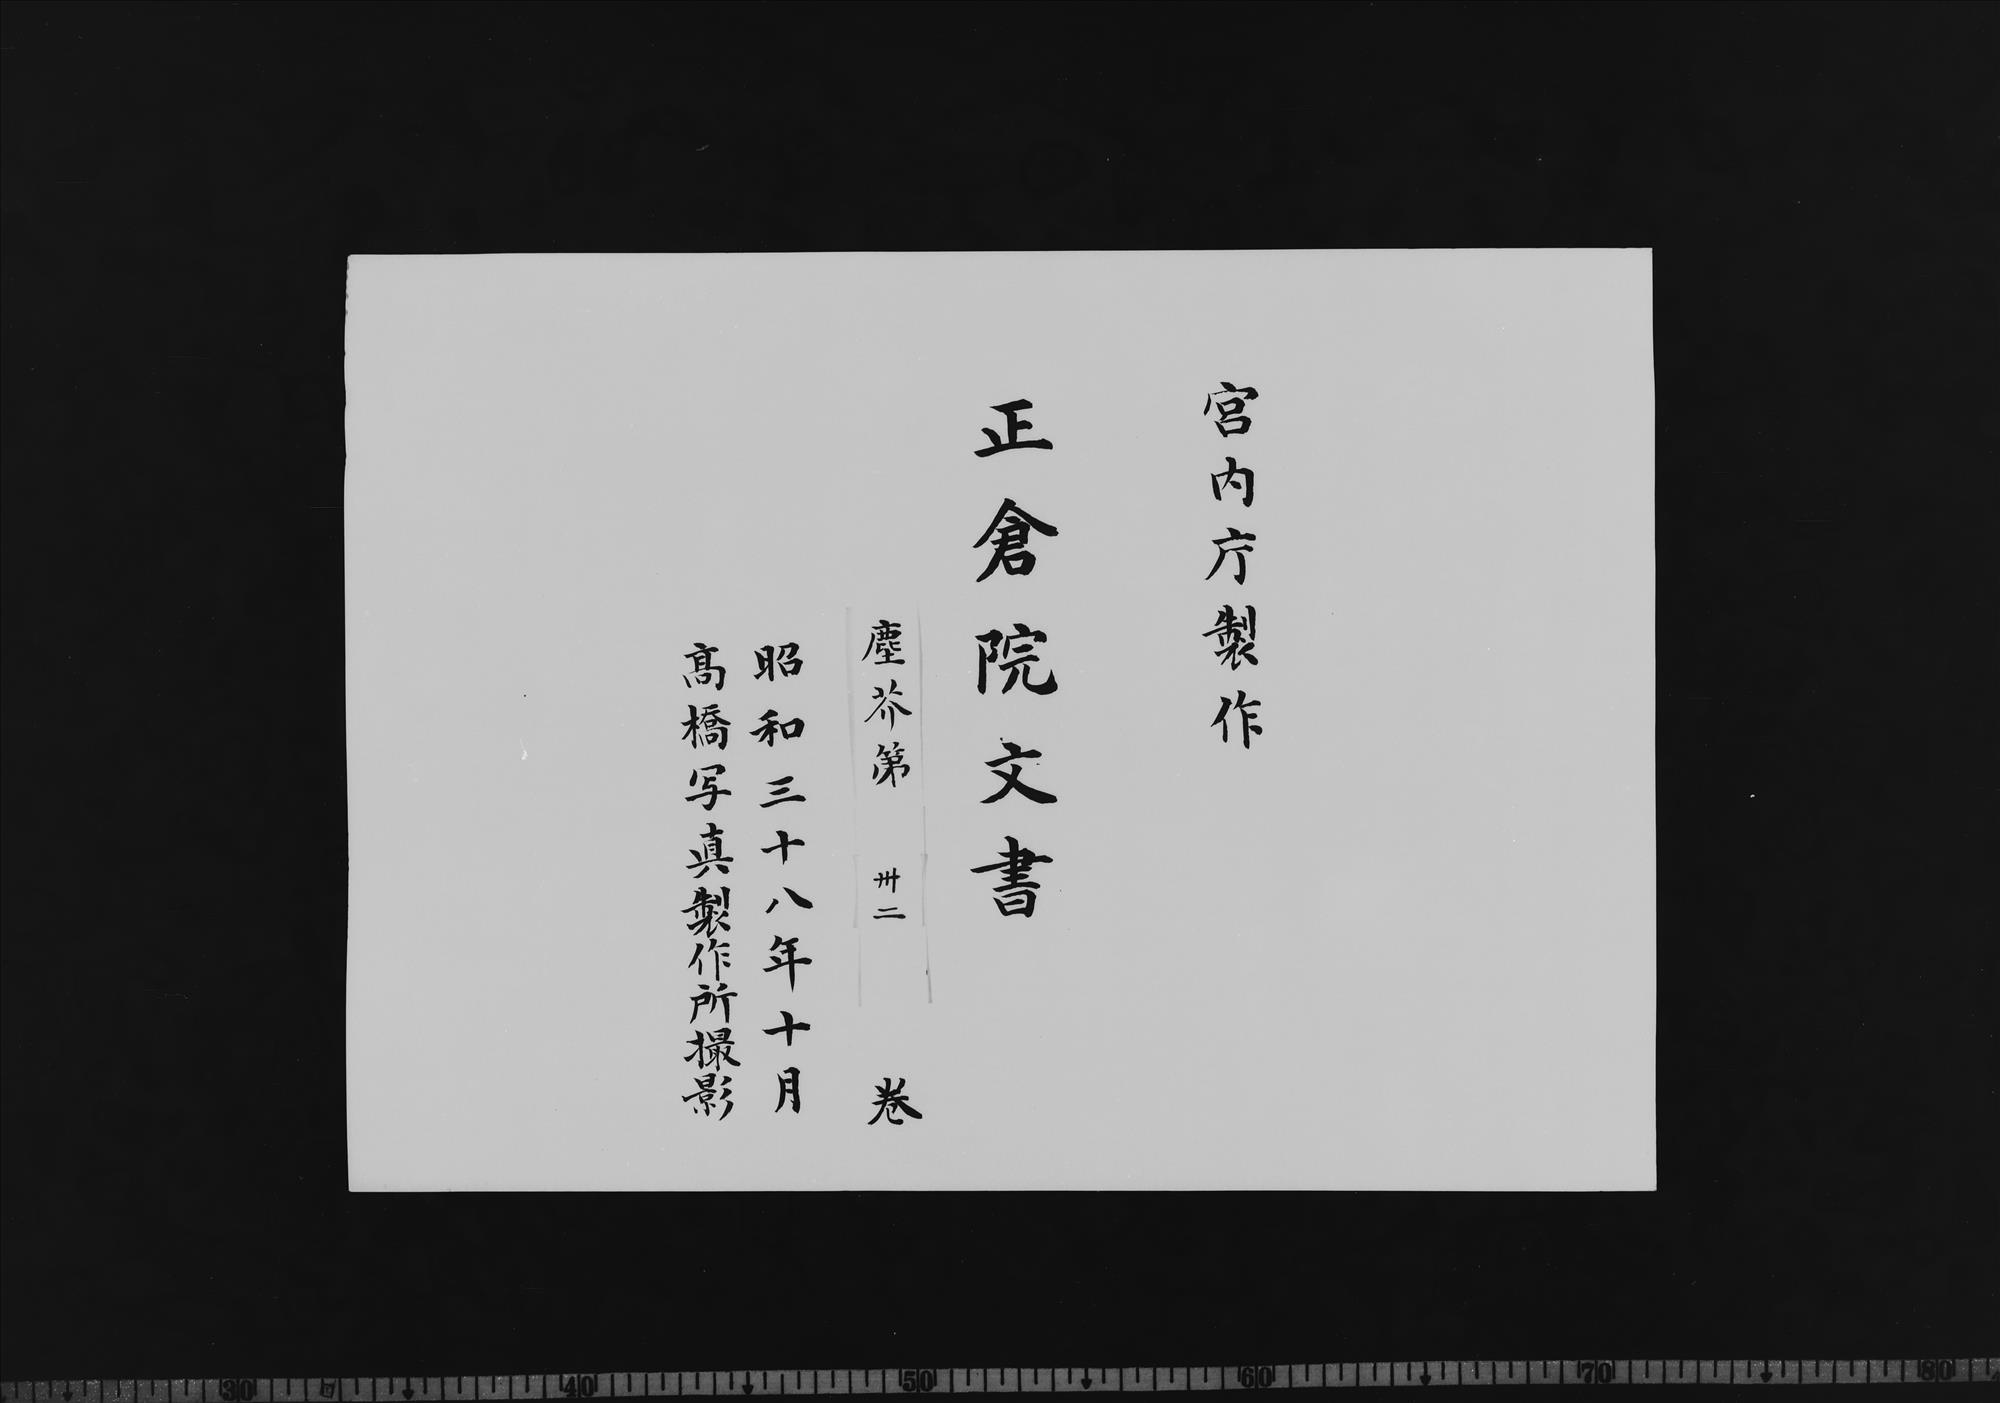 宮内庁製作
正倉院文書
塵芥第 卅二 巻
昭和三十八年十月
髙橋写真製作所撮影
30 40 50 60 70 80